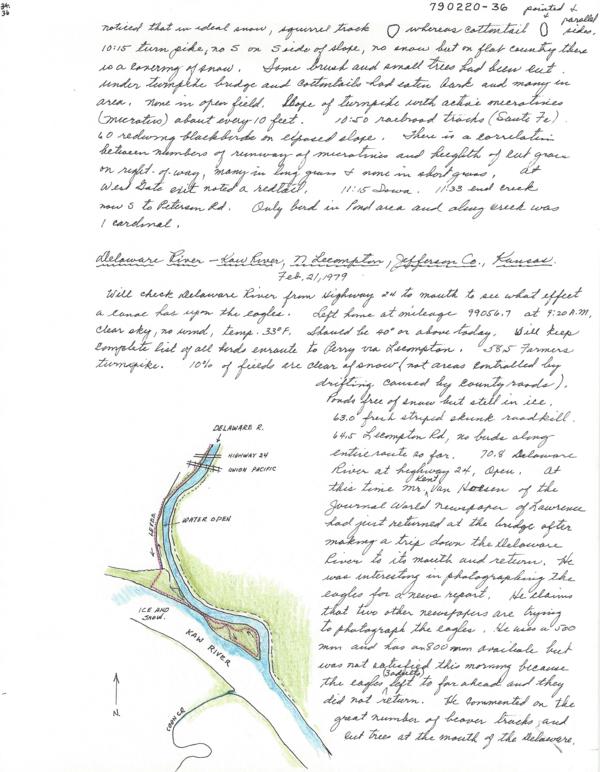 34.
36
790220-36 pointed & parallel sides.
noticed that in ideal snow, squirrel track whereas cottontail
10:15 turnpike, no S on S side of slope, no snow but on flat country there
is a covering of snow. Some brush and small trees had been cut
under turnpike bridge and cottontails had eaten bark and many in
area. None in open field. Slope of turnpike with active microtines
(Microtus) about every 10 feet. 10:50 railroad tracks (Sante Fe).
60 redwing blackbirds on exposed slope. There is a correlation
between numbers of runway of microtines and heighth of cut grass
on right of way, many in long grass & none in short grass. At
West Gate exit noted a redtail. 11:15 Iowa. 11:33 end creek
now S to Peterson Rd. Only bird in Pond area and along creek was
1 cardinal.
Delaware River - Kaw River, N Lecompton, Jefferson Co., Kansas.
Feb. 21, 1979
Will check Delaware River from Highway 24 to mouth to see what effect
a canoe has upon the eagles. Left home at mileage 99056.7 at 9:20 A.M,
clear sky, no wind, temp. 33°F. Should be 40° or above today. Will keep
complete list of all birds enroute to Perry via Lecompton. 58.5 Farmers
turnpike. 10% of fields are clear of snow (not areas controlled by
drifting caused by county roads).
Ponds free of snow but still in ice.
63.0 fresh striped skunk road kill.
64.5 Lecompton Rd, no birds along
entire route so far. 70.8 Delaware
River at highway 24, Open. At
this time Mr. Kent Van Hoesen of the
Journal World newspaper of Lawrence
had just returned at the bridge after
making a trip down the Delaware
River to its mouth and return. He
was interesting in photographing the
eagles for a news report. He claims
that two other newspapers are trying
to photograph the eagles. He uses a 500
mm and has an 800 mm available but
was not satisfied this morning because
the eagles (3 adults) left to far ahead and they
did not return. He commented on the
great number of beaver tracks, and
cut trees at the mouth of the Delaware.
DELAWARE R.
HIGHWAY 24
UNION PACIFIC
LEVEE
WATER OPEN
ICE AND
SNOW.
KAW RIVER
N.
COON CR